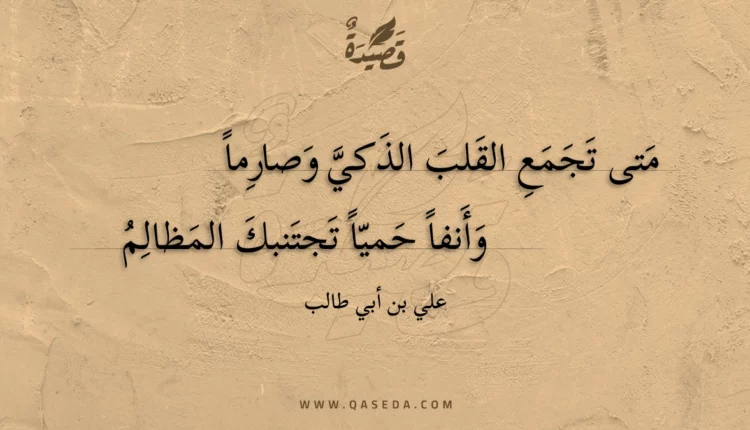 قَصِيدَةٌ
مَتى تَجَمَعِ القَلبَ الذَكيَّ وَصارِماً
وَأَنفاً حَميّاً تَجتَنبكَ المَظالِمُ
علي بن أبي طالب
WWW.QASEDA.COM